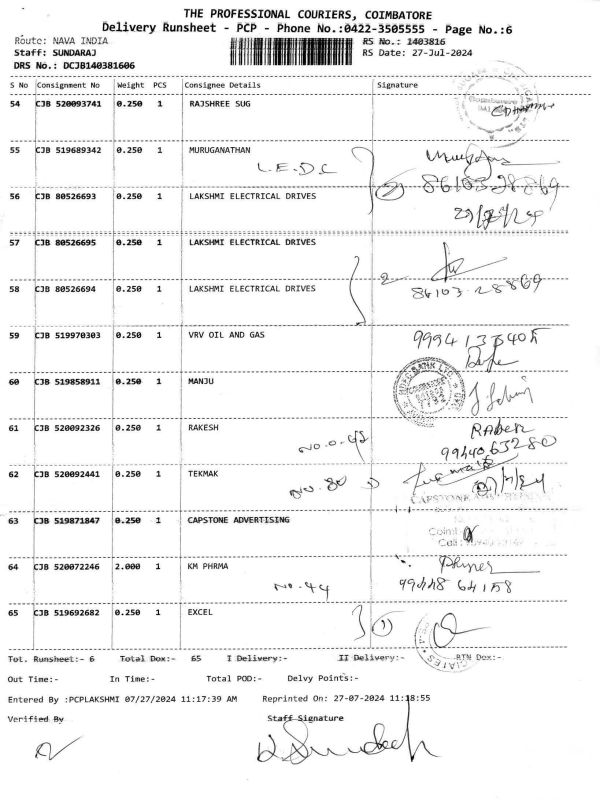 THE PROFESSIONAL COURIERS, COIMBATORE
Delivery Runsheet - PCP - Phone No.:0422-3505555 - Page No.:6
Route: NAVA INDIA RS No.: 1403816
Staff: SUNDARAJ RS Date: 27-Jul-2024
DRS No.: DCJB140381606
S No Consignment No Weight PCS Consignee Details Signature
54 CJB 520093741 0.250 1 RAJSHREE SUG
55 CJB 519689342 0.250 1 MURUGANATHAN
L.E.D.C
2 86103 28869
56 CJB 80526693 0.250 1 LAKSHMI ELECTRICAL DRIVES
57 CJB 80526695 0.250 1 LAKSHMI ELECTRICAL DRIVES
2
58 CJB 80526694 0.250 1 LAKSHMI ELECTRICAL DRIVES 86103.28869
59 CJB 519970303 0.250 1 VRV OIL AND GAS
HDFC BANK LTD.
60 CJB 519858911 0.250 1 MANJU
61 CJB 520092326 0.250 1 RAKESH
99440 63280
62 CJB 520092441 0.250 1 TEKMAK
No. 80
CAPSTONE
63 CJB 519871847 0.250 1 CAPSTONE ADVERTISING
64 CJB 520072246 2.000 1 KM PHRMA
No. 44 99448 64158
65 CJB 519692682 0.250 1 EXCEL
1
Tot. Runsheet:- 6 Total Dox:- 65 I Delivery:- II Delivery:- RTN Dox:-
Out Time:- In Time:- Total POD:- Delvy Points:-
Entered By :PCPLAKSHMI 07/27/2024 11:17:39 AM Reprinted On: 27-07-2024 11:18:55
Verified By Staff Signature